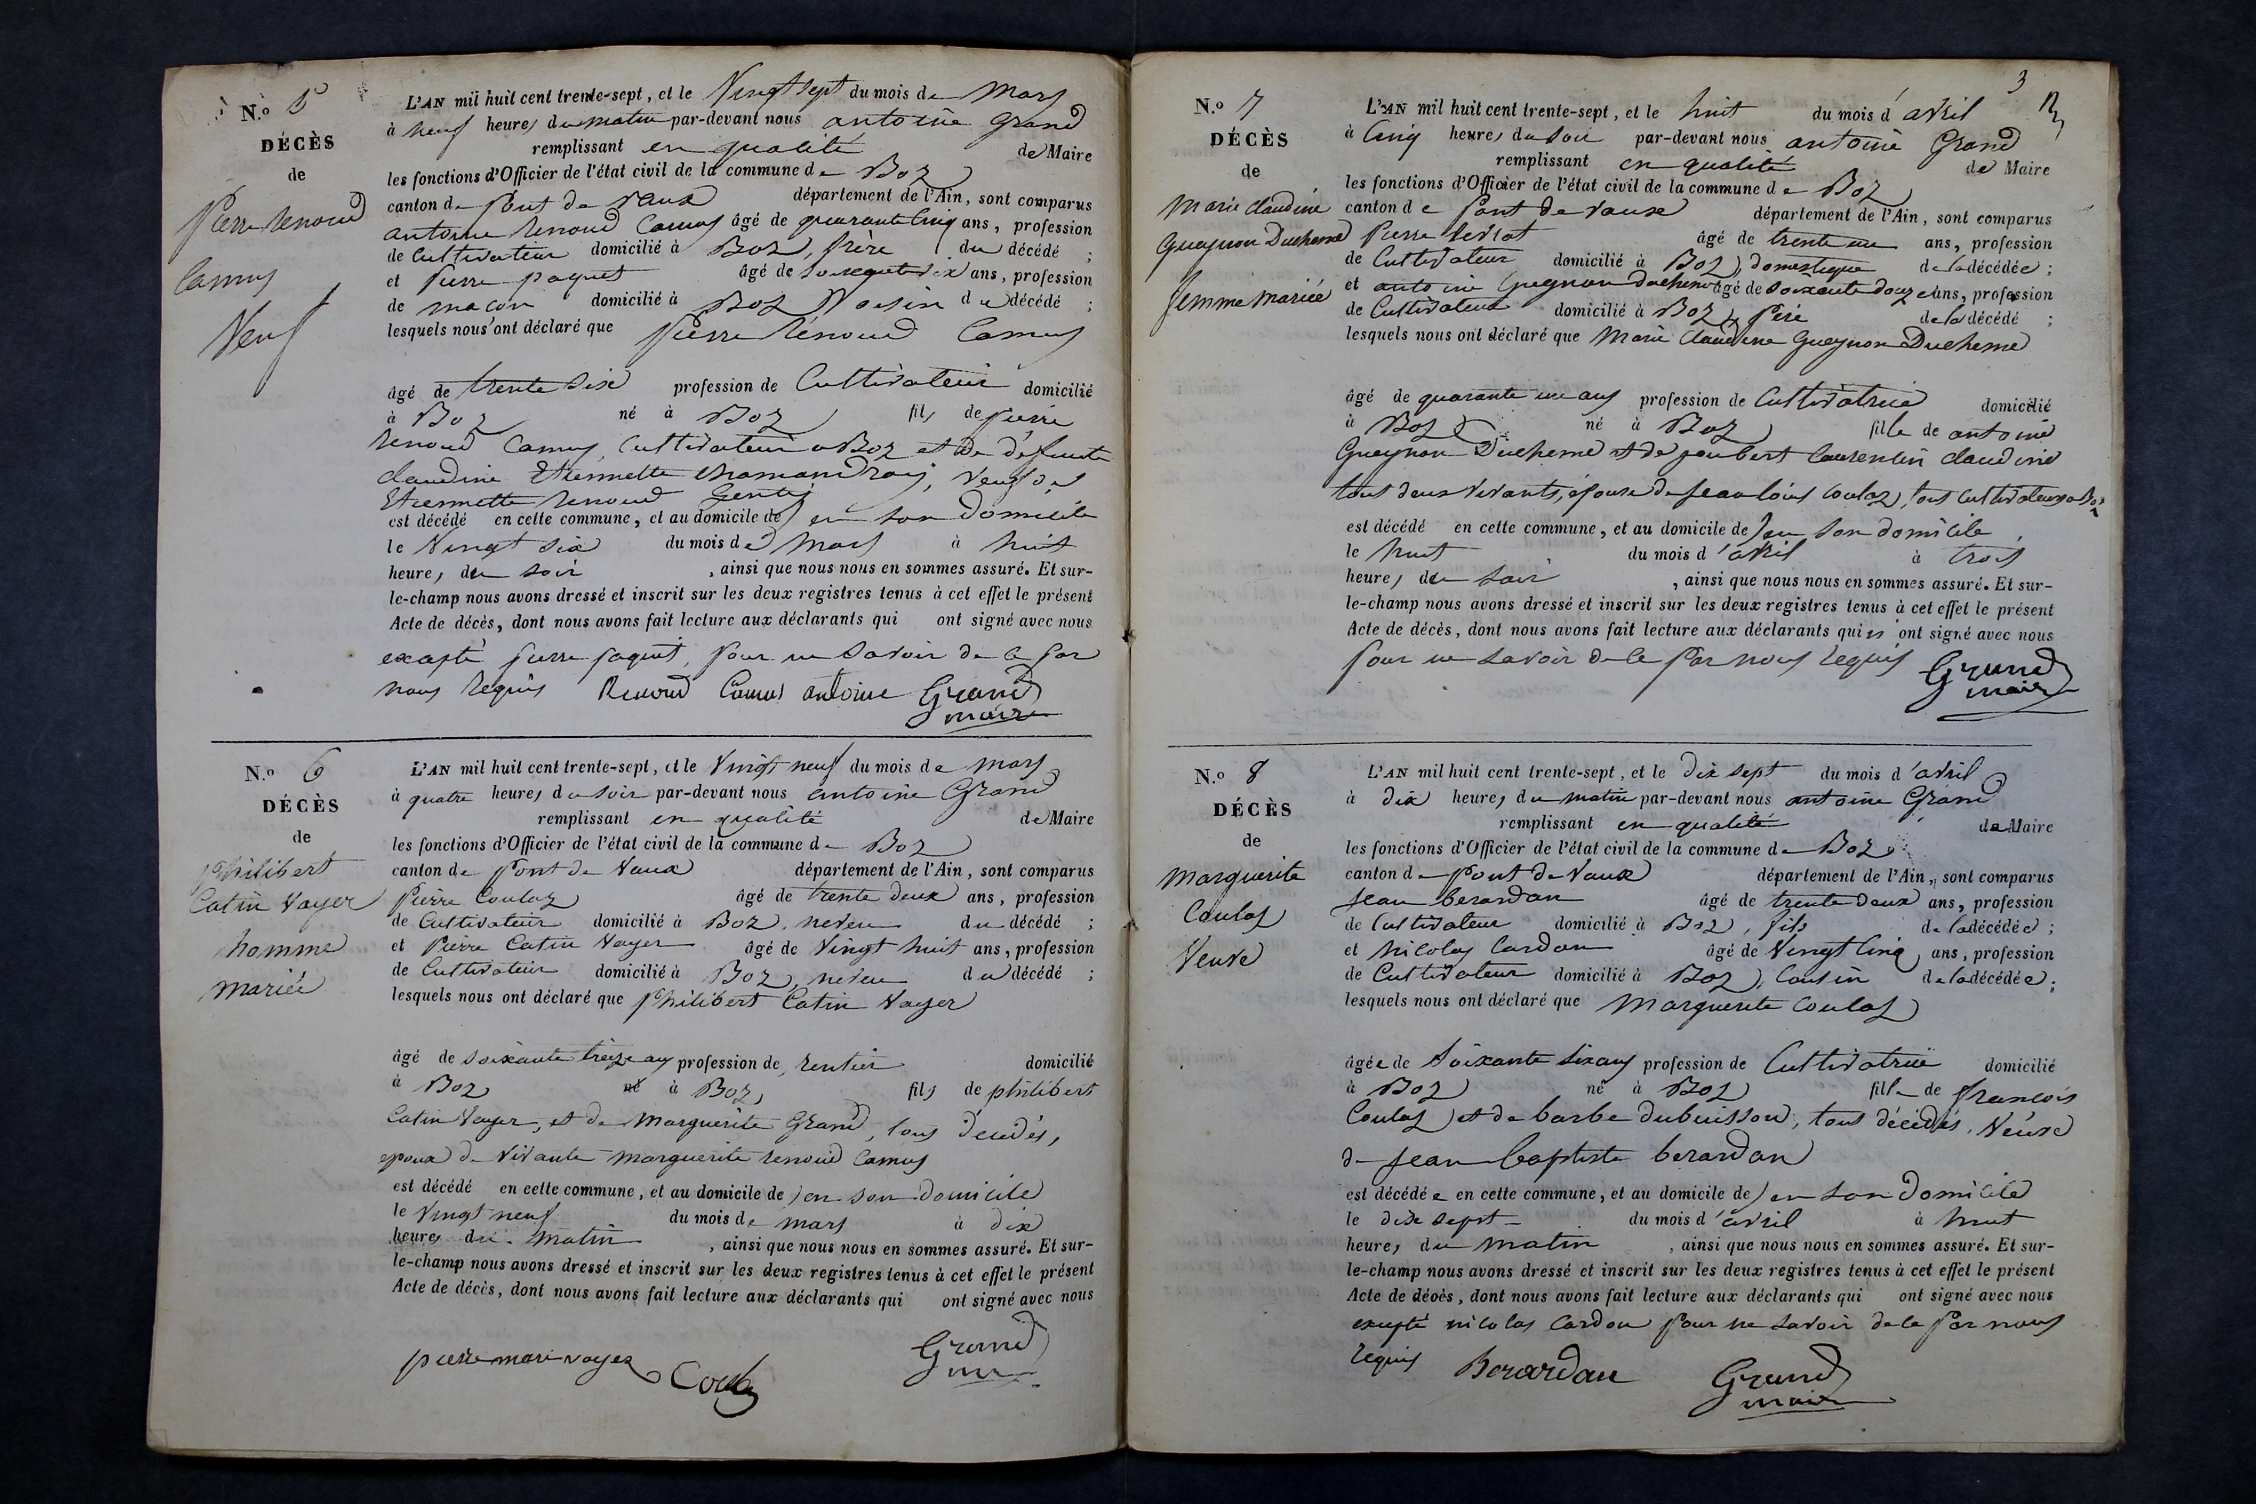 N.o 5
DÉCÈS
de
Pierre renoud
Camus
Veuf
L'AN mil huit cent trente-sept, et le Vingt sept du mois de Mars
à neuf heures du matin par-devant nous antoine Grand
remplissant en qualité de Maire
les fonctions d'Officier de l'état civil de la commune de Boz
canton de Pont de Vaux département de l'Ain, sont comparus
antoine renoud Camus âgé de quarante cinq ans, profession
de Cultivateur domicilié à Boz, frère du décédé ;
et Pierre paquet âgé de soixante dix ans, profession
de maçon domicilié à Boz, Voisin du décédé ;
lesquels nous ont déclaré que Pierre renoud Camus
âgé de trente six profession de Cultivateur domicilié
à Boz né à Boz fils de pierre
renoud Camus, Cultivateur a Boz et de défunte
claudine Etiennette chamandray, Veuf de
Etiennette renoud Gentis
est décédé en cette commune, et au domicile de en son Domicile
le Vingt six du mois de Mars à huit
heures du soir, ainsi que nous nous en sommes assuré. Et sur-
le-champ nous avons dressé et inscrit sur les deux registres tenus à cet effet le présent
Acte de décès, dont nous avons fait lecture aux déclarants qui ont signé avec nous
excepté pierre paquet, pour ne Savoir de ce par
nous requis Renoud Camus antoine Grand
maire
N.o 6
DÉCÈS
de
philibert
Catin Vayer
homme
mariée
L'AN mil huit cent trente-sept, et le Vingt neuf du mois de mars
à quatre heures du soir par-devant nous antoine Grand
remplissant en qualité de Maire
les fonctions d'Officier de l'état civil de la commune de Boz
canton de Pont de Vaux département de l'Ain, sont comparus
Pierre Coulaz âgé de trente deux ans, profession
de Cultivateur domicilié à Boz, neveu du décédé ;
et Pierre Catin Vayer âgé de Vingt huit ans, profession
de Cultivateur domicilié à Boz, neveu du décédé ;
lesquels nous ont déclaré que Philibert Catin Vayer
âgé de soixante treize ans profession de rentier domicilié
à Boz né à Boz, fils de philibert
Catin Vayer, et de Marguerite Grand, tous décédés,
epoux de Vivante marguerite renoud Camus
est décédé en cette commune, et au domicile de en son domicile
le Vingt neuf du mois de mars à dix
heures du matin, ainsi que nous nous en sommes assuré. Et sur-
le-champ nous avons dressé et inscrit sur les deux registres tenus à cet effet le présent
Acte de décès, dont nous avons fait lecture aux déclarants qui ont signé avec nous
Grand
pierre mari vayez
3
N.o 7
DÉCÈS
de
Marie claudine
Gueynon Duchene
femme mariée
L'AN mil huit cent trente-sept, et le huit du mois d'avril
à Cinq heures du soir par-devant nous antoine Grand
remplissant en qualité de Maire
les fonctions d'Officier de l'état civil de la commune de Boz
canton de Pont de Vaux département de l'Ain, sont comparus
Pierre âgé de trente un ans, profession
de Cultivateur domicilié à Boz, domestique de la décédée ;
et antoine Gueynon duchene âgé de soixante douze ans, profession
de Cultivateur domicilié à Boz, Père de la décédé ;
lesquels nous ont déclaré que Marie Claudine Gueynon Duchene
âgé de quarante un ans profession de Cultivatrice domicilié
à Boz né à Boz fille de antoine
Gueynon Duchene et de joubert Laurentin claudine
tous deux Vivants, épouse de Jean louis Coulaz, tous Cultivateurs a Boz
est décédé en cette commune, et au domicile de en son domicile
le huit du mois d'avril à trois
heures du soir, ainsi que nous nous en sommes assuré. Et sur-
le-champ nous avons dressé et inscrit sur les deux registres tenus à cet effet le présent
Acte de décès, dont nous avons fait lecture aux déclarants qui n'ont signé avec nous
pour ne savoir de ce par nous requis Grand
maire
N.o 8
DÉCÈS
de
Marguerite
Coulaz
Veuve
L'AN mil huit cent trente-sept, et le dix sept du mois d'avril
à dix heures du matin par-devant nous antoine Grand
remplissant en qualité de Maire
les fonctions d'Officier de l'état civil de la commune de Boz
canton de Pont de Vaux département de l'Ain, sont comparus
Jean berardan âgé de trente deux ans, profession
de Cultivateur domicilié à Boz, fils de la décédée ;
et Nicolas Cardon âgé de Vingt Cinq ans, profession
de Cultivateur domicilié à Boz, Cousin de la décédée ;
lesquels nous ont déclaré que Marguerite Coulaz
âgée de Soixante six ans profession de Cultivatrice domicilié
à Boz né à Boz fille de françois
Coulaz et de barbe dubuisson, tous décédés, Veuve
de Jean baptiste berardan
est décédée en cette commune, et au domicile de en son Domicile
le dix sept du mois d'avril à huit
heures du matin, ainsi que nous nous en sommes assuré. Et sur-
le-champ nous avons dressé et inscrit sur les deux registres tenus à cet effet le présent
Acte de décès, dont nous avons fait lecture aux déclarants qui ont signé avec nous
excepté nicolas Cardon pour ne savoir de ce par nous
requis Berardan Grand
maire